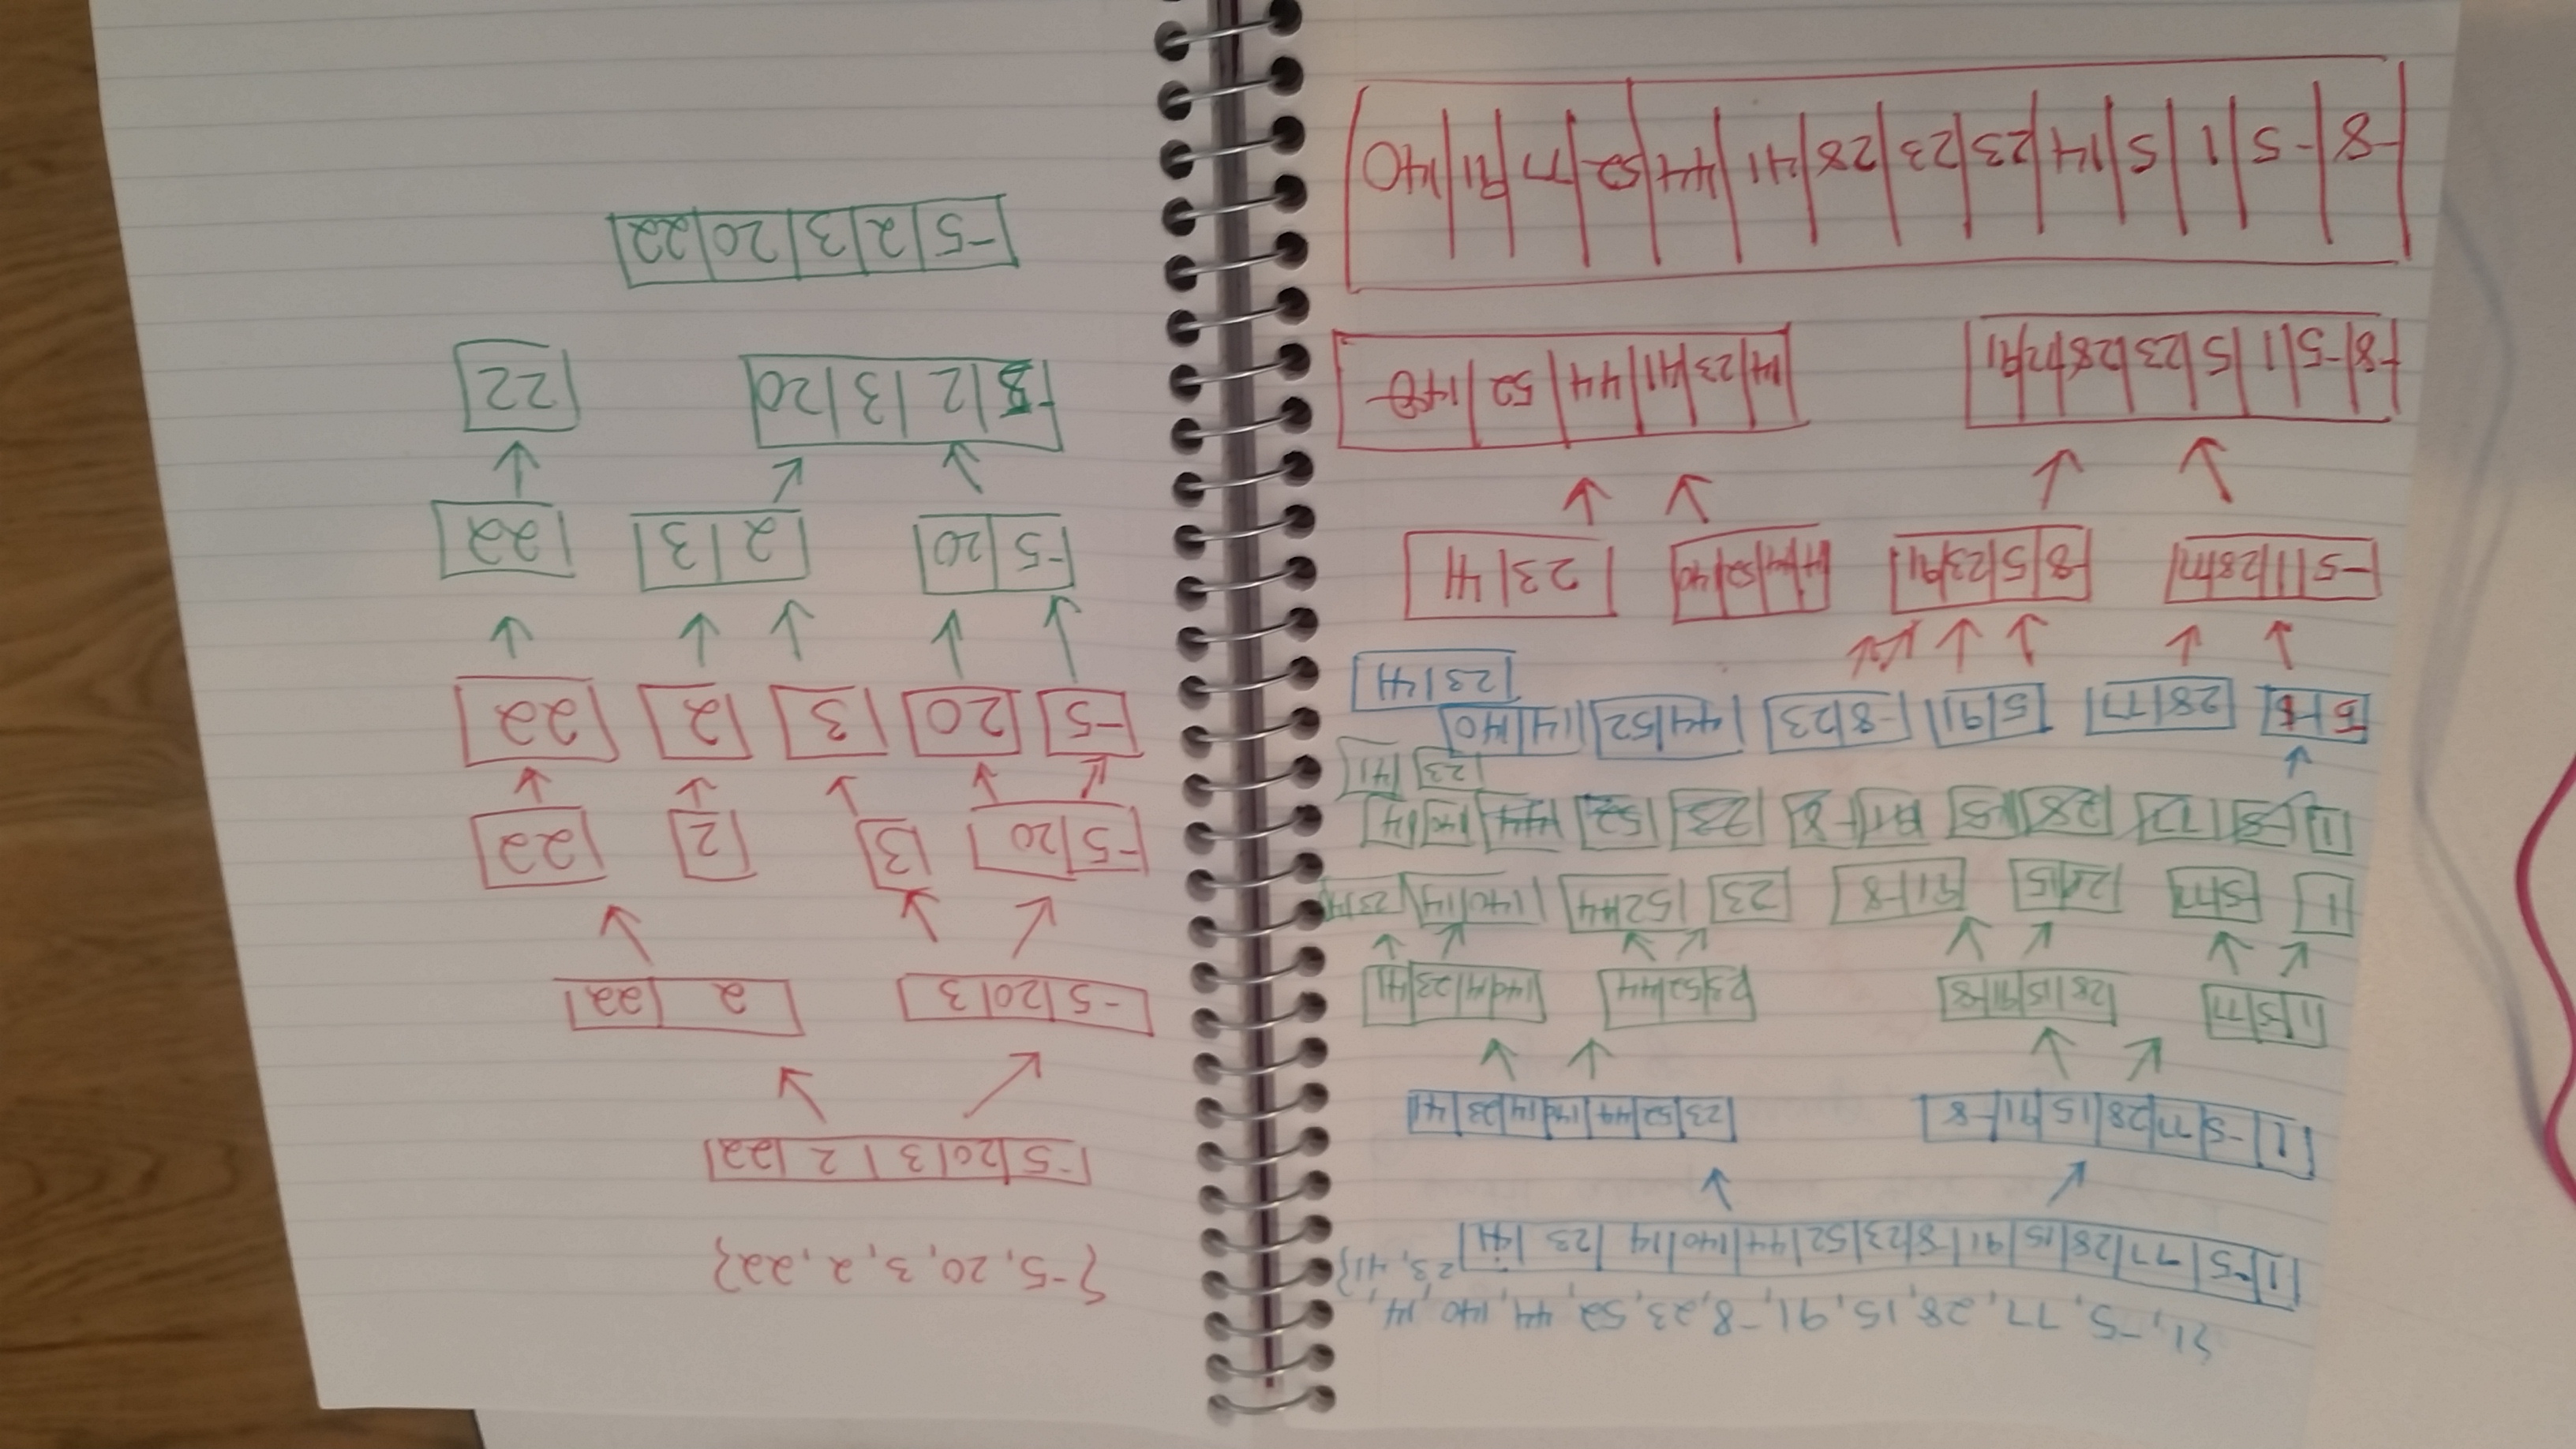 {1, -5, 77, 28, 15, 91, -8, 23, 52, 44, 140, 14,
23, 41}
1 -5 77 28 15 91 -8 23 52 44 140 14 23 41
1 -5 77 28 15 91 -8 23 52 44 140 14 23 41
1 -5 77 28 15 91 -8 23 52 44 140 14 23 41
1 -5 77 28 15 91 -8 23 52 44 140 14 23
1 -5 77 28 15 91 -8 23 52 44 140 14
23 41
28 77 5 91 -8 23 44 52 14 140
23 41
-5 1 28 77 -8 5 23 91 14 44 52 140 23 41
-8 -5 1 5 23 28 77 91 14 23 41 44 52 140
-8 -5 1 5 14 23 23 28 41 44 52 77 91 140
{-5, 20, 3, 2, 22}
-5 20 3 2 22
-5 20 3 2 22
-5 20 3 2 22
-5 20 3 2 22
-5 20 2 3 22
-5 2 3 20 22
-5 2 3 20 22